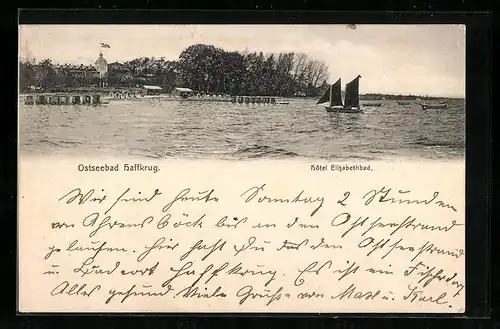 Ostseebad Haffkrug.
Hôtel Elisabethbad.
Wir sind heute Sonntag 2 Stunden
von Ahrensböck bis an den Ostseestrand
gelaufen. Hier hast Du den Ostseestrand
u. Badeort Haffkrug. Es ist ein Fischdorf
Alles gesund. Viele Grüße von Max u. Karl.